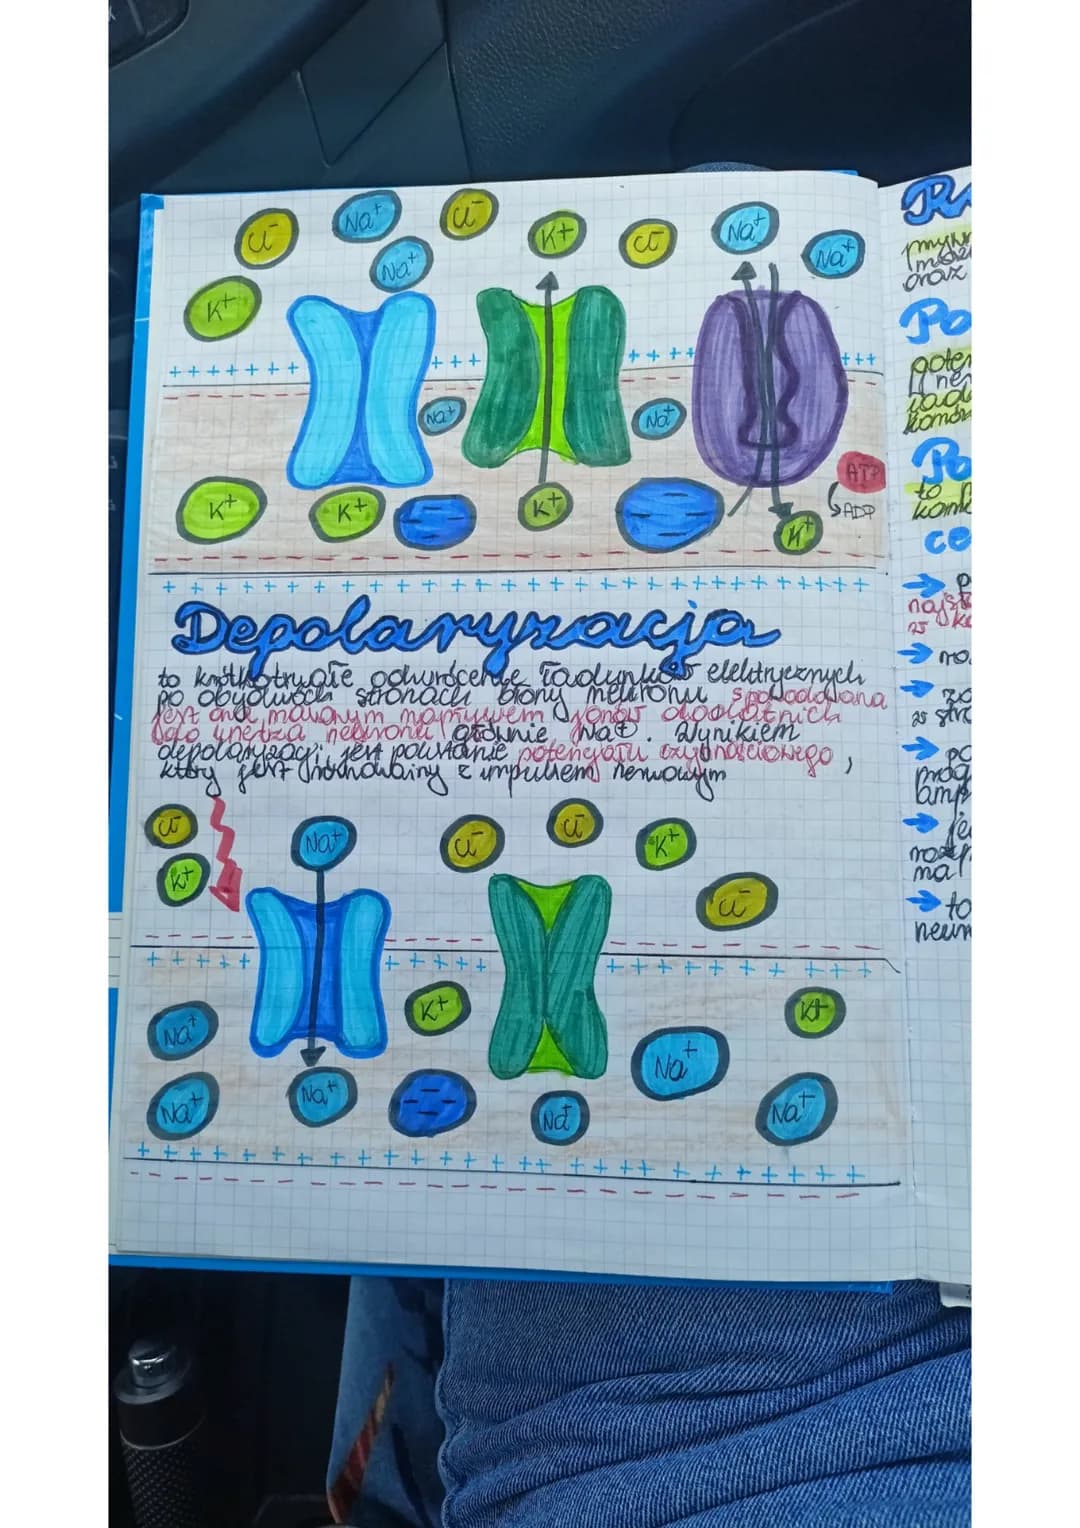 Cl⁻ Na⁺ Cl⁻ K⁺ Cl⁻ Na⁺ Na⁺
K⁺ Na⁺
+ + + + + + + + + + + + + + + + +
Na⁺ Na⁺
ATP
K⁺ K⁺ K⁺ ADP
K⁺
Depolaryzacja
to krótkotrwałe odwrócenie ładunków elektrycznych
po obydwóch stronach błony neuronu spowodowana
jest ona masowym napływem jonów dodatnich
do wnętrza neuronu głównie Na⁺. Wynikiem
depolaryzacji jest powstanie potencjału czynnościowego,
który jest równoważny z impulsem nerwowym
Cl⁻ Na⁺ Cl⁻ Cl⁻ K⁺
K⁺ Cl⁻
Na⁺ K⁺ Na⁺ K⁺
Na⁺ Na⁺ Na⁺ Na⁺
oraz
Po
Po
to
ce
→ p
→ ro
→ za
→ po
→ je
→ to
neur